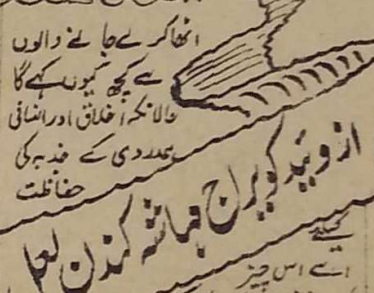 اٹھا کر لے جانے والوں
سے کچھ کیوں کہے گا
حالانکہ اخلاق اور انسانی
ہمدردی کے جذبہ کی
حفاظت
از وئید کویراج مہاشہ کندن لعل
کیلئے
اسے اس چیز